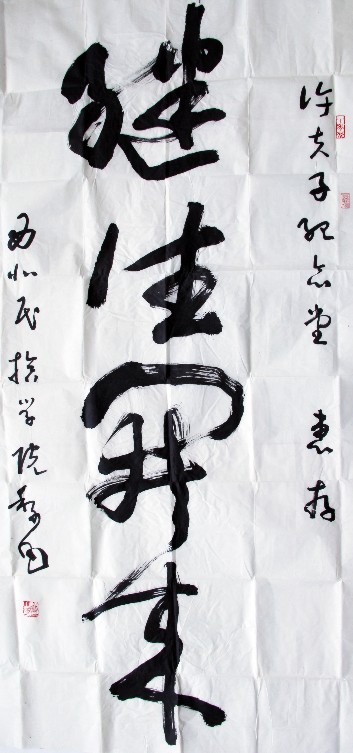 许夫子纪念堂 惠存
继往开来
西北民族学院